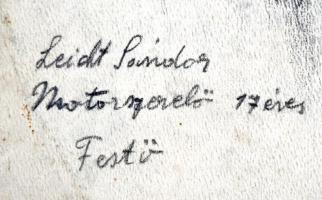 Leidt Sándor
Motorszerelő 17 éves
Festő